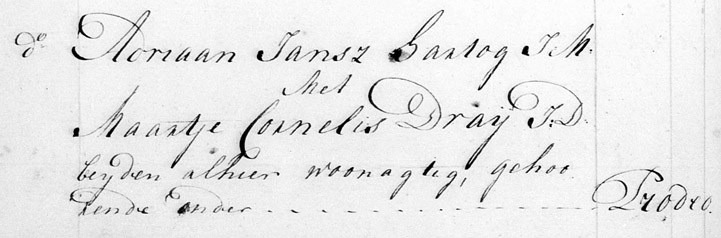 do Adriaan Jansz Hartog J:M:
Met
Maartje Cornelis Draÿ J:D:
beÿden alhier woonagtig, gehoo
rende onder - - - - - - - - - - - Prodeo.